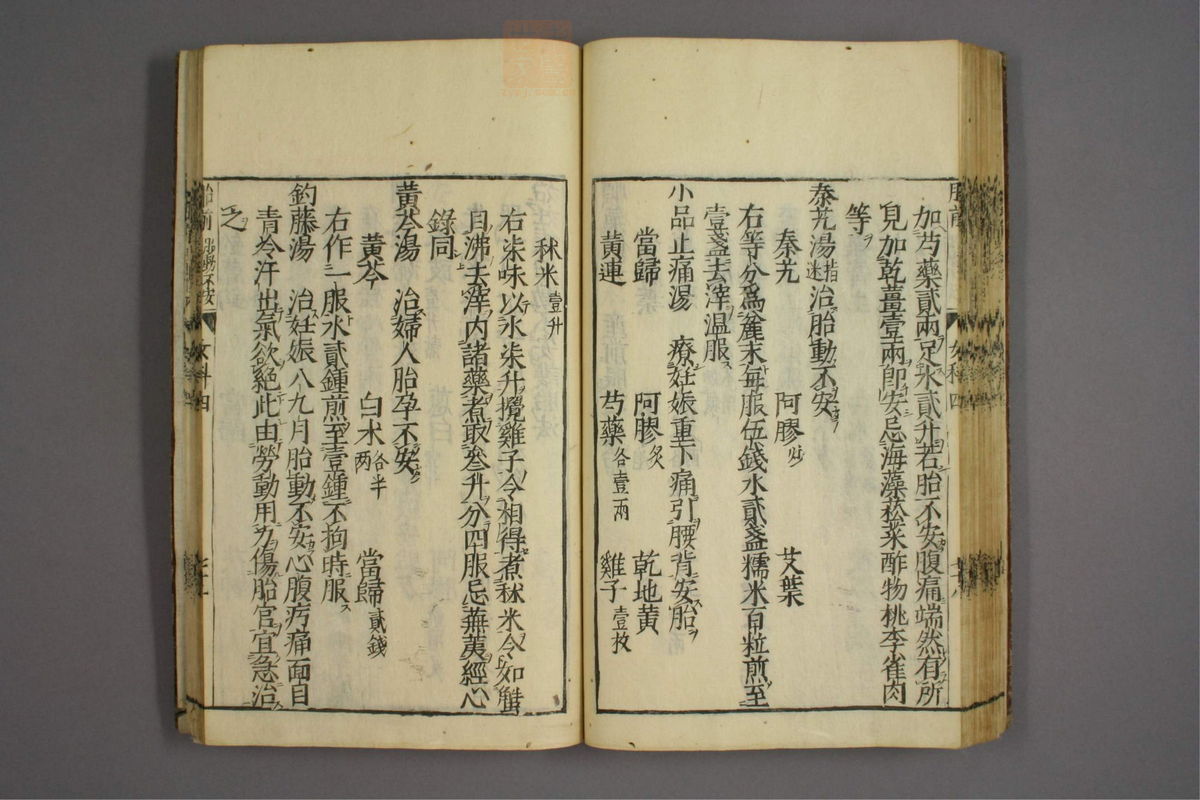 加芍藥貳兩足水貳升若胎不安腹痛端然有所
見加乾薑壹兩卽安忌海藻菘菜酢物桃李雀肉
等
秦艽湯指迷治胎動不安
秦艽 阿膠炒 艾葉
右等分爲麄末每服伍錢水貳盞糯米百粒煎至
壹盞去滓溫服
小品止痛湯 療妊娠重下痛引腰背安胎
當歸 阿膠炙 乾地黄
黄連 芍藥各壹兩 雞子壹枚
秫米壹升
右柒味以水柒升攪雞子令相得煮秫米令如蟹
目沸去滓内諸藥煮取叁升分四服忌蕪荑經心
錄同
黄芩湯 治婦人胎孕不安
黄芩 白朮各半兩 當歸貳錢
右作一服水貳鍾煎至壹鍾不拘時服
釣藤湯 治妊娠八九月胎動不安心腹㽲痛面目
青冷汗出氣欲絕此由勞動用力傷胎宫宜急治
之